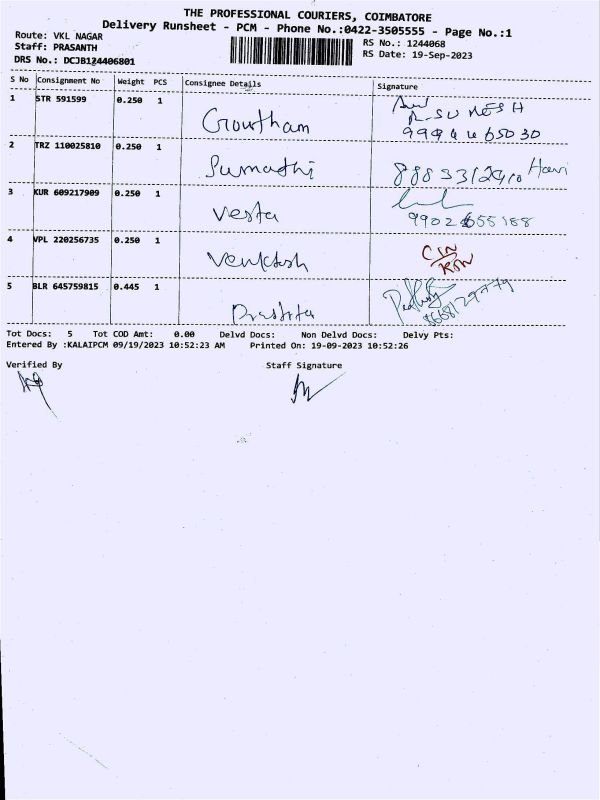 THE PROFESSIONAL COURIERS, COIMBATORE
Delivery Runsheet - PCM - Phone No.:0422-3505555 - Page No.:1
Route: VKL NAGAR
Staff: PRASANTH
DRS No.: DCJB124406801
RS No.: 1244068
RS Date: 19-Sep-2023
S No Consignment No Weight PCS Consignee Details Signature
1 STR 591599 0.250 1 Gowtham
2 TRZ 110025810 0.250 1 Sumathi Hari
3 KUR 609217909 0.250 1 Vesta
4 VPL 220256735 0.250 1 Venktesh
5 BLR 645759815 0.445 1
Tot Docs: 5 Tot COD Amt: 0.00 Delvd Docs: Non Delvd Docs: Delvy Pts:
Entered By :KALAIPCM 09/19/2023 10:52:23 AM Printed On: 19-09-2023 10:52:26
Verified By Staff Signature